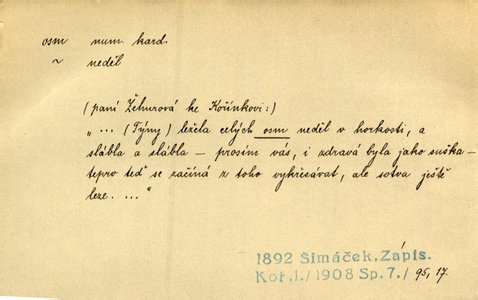 osm num. kard.
~ neděl
(paní Žemrová ke Kořínkovi:)
„ ... (Týny) ležela celých osm neděl v horkosti, a
slábla a slábla – prosím vás, i zdravá byla jako suška –
teprv teď se začíná z toho vykřesávat, ale sotva ještě
leze. ..."
1892 Šimáček, Zápis.
Koř.1./1908 Sp.7./ 95, 17.